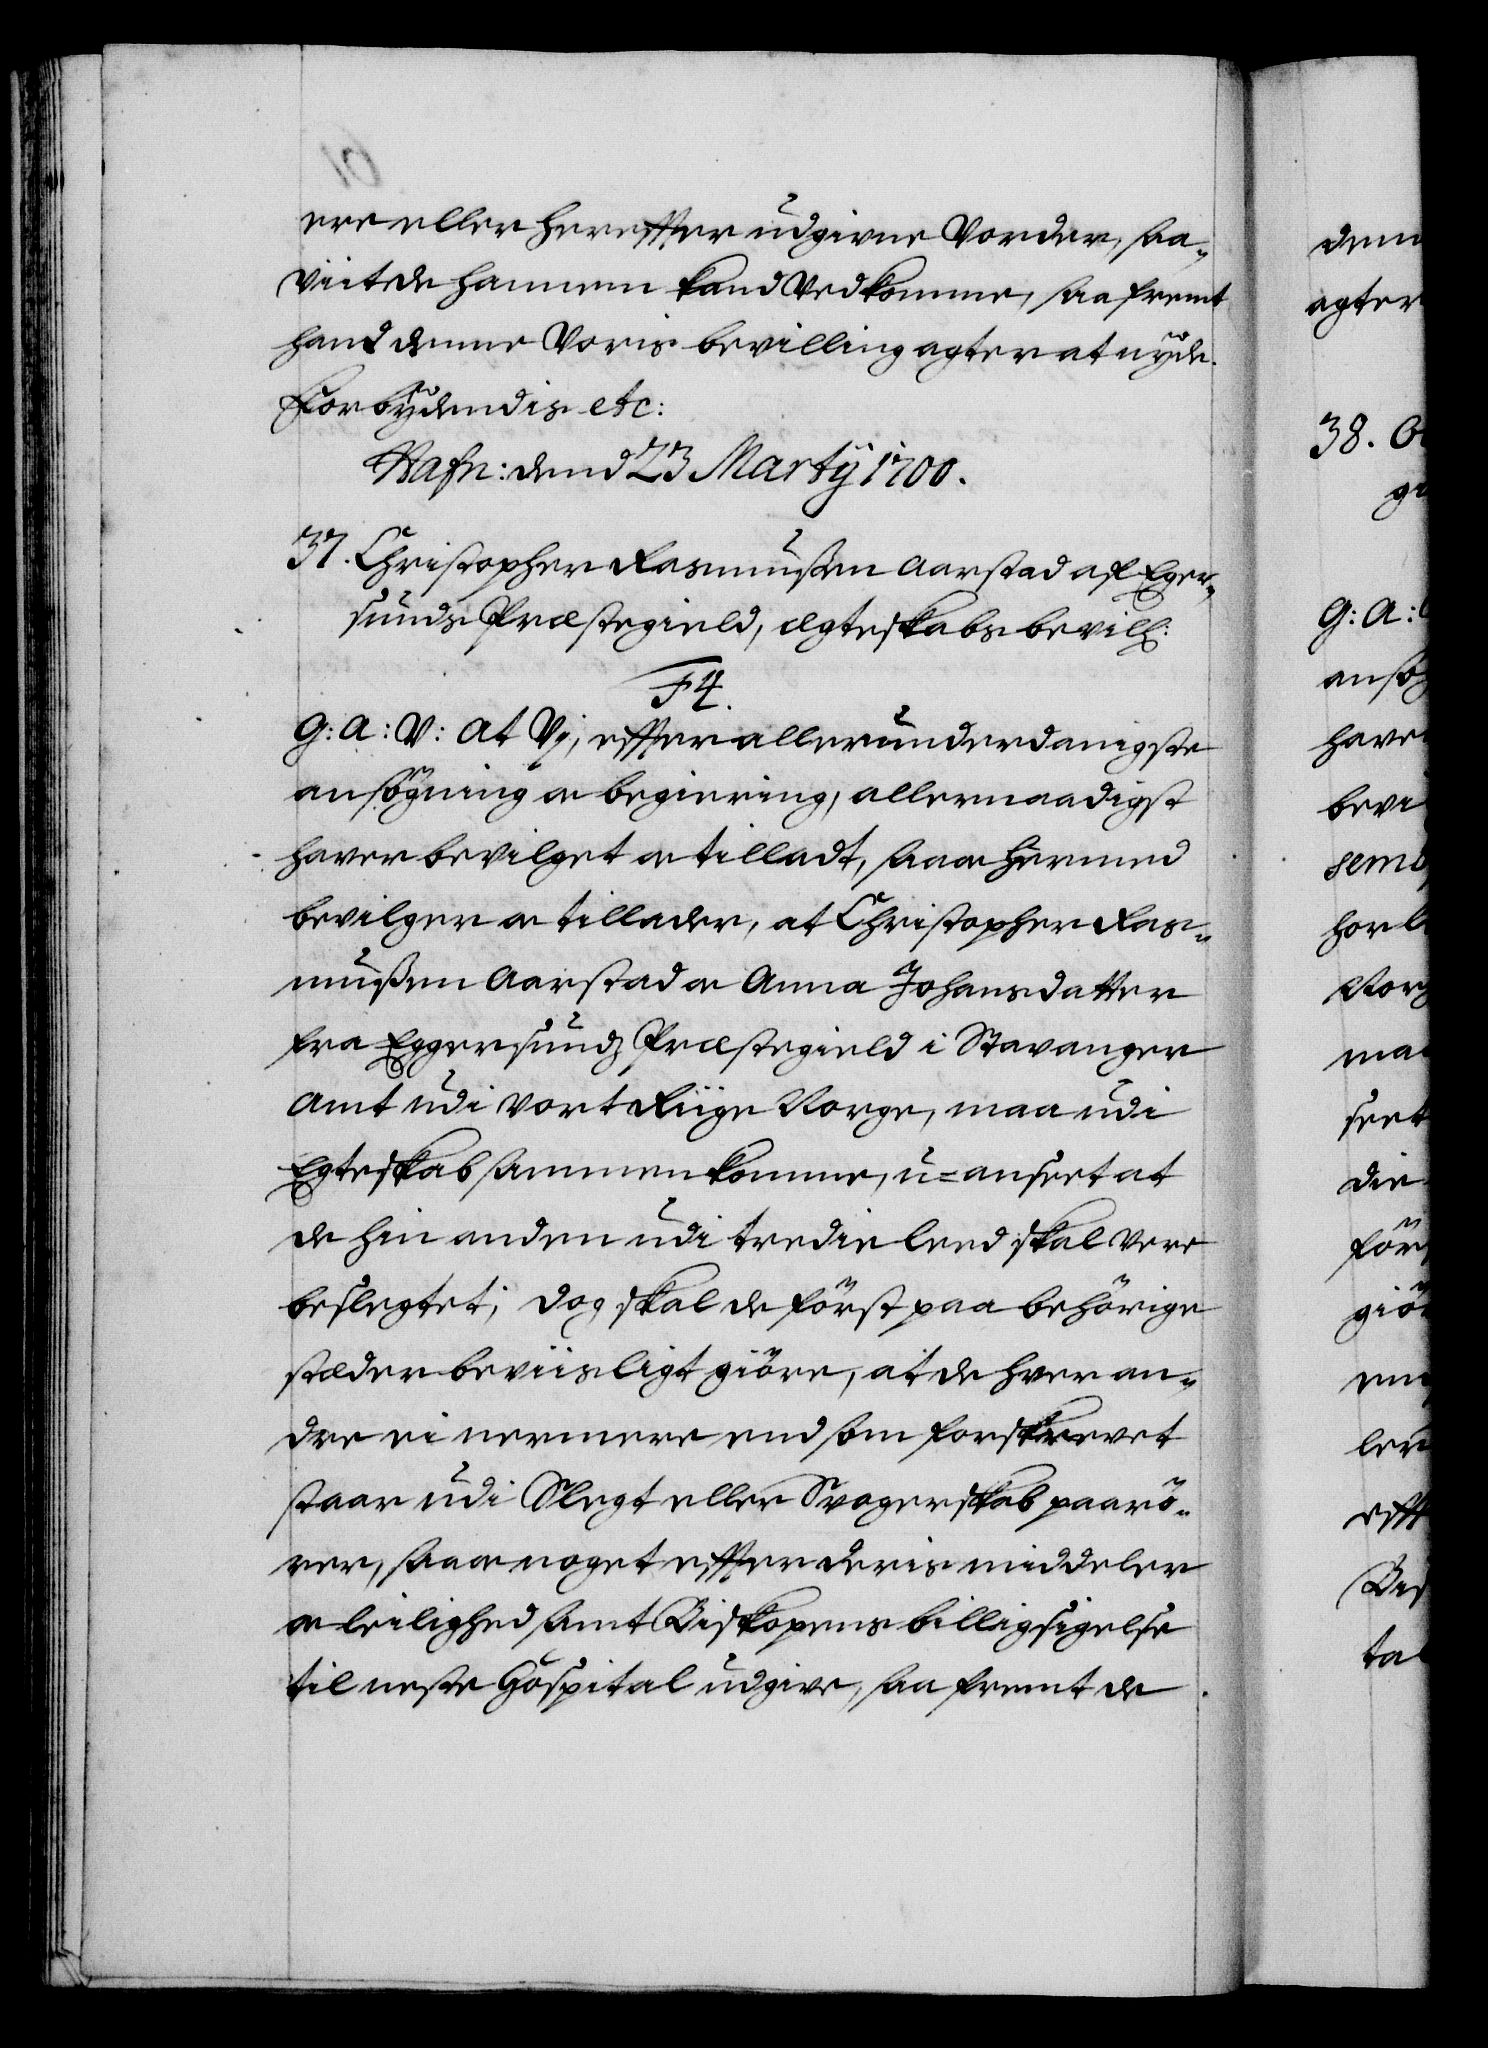 ere eller hereffter udgivne Vorder, saa-
viit de hannem kand Vedkomme, saa fremt
hand denne Voris bevilling agter at nyde.
Forbydendis etc:
Hafn: dend 23 Martij 1700.
37. Christopher Rasmußen Aarstad aff Eger-
sunds Præstegield, ægteskabs bevilg:
F4.
G: A: V: At Vj, effter allerunderdanigste
ansögning oc begiering, allernaadigst
haver bevilget oc tilladt, saa oc hermed
bevilger oc tillader, at Christopher Ras-
mußen Aarstad oc Anna Johansdatter
fra Eggersunds Præstegield i Stavanger
Amt udi vort Riige Norge, maa udi
Egteskab sammenkomme, u=anseet at
de hin anden udi tredie leed skal vere
beslegtet; dog skal de först paa behörige
stæder beviisligt giöre, at de hver an-
dre ei nermere end som forskrevet
staar udi Slegt eller Svogerskab paarö-
rer, saa oc noget effter deris middeler
oc leilighed samt Biskopens billigsigelse
til neste Hospital udgive, saa fremt de
61
dem
agter
38.
G: A:
ansög
haver
bevi
hor
Norg
maa
seet
die
för
giör
ler
efft
tal